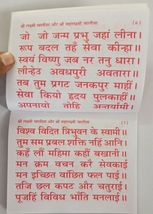 श्री लक्ष्मी चालीसा और श्री महालक्ष्मी चालीसा (६)
जो जो जन्म प्रभु जहां लीना।
रूप बदल तहँ सेवा कीन्हा॥
स्वयं विष्णु जब नर तनु धारा।
लीन्हेउ अवधपुरी अवतारा॥
तब तुम प्रगट जनकपुर माहीं।
सेवा कियो हृदय पुलकाहीं॥
अपनायो तोहि अन्तर्यामी।
श्री लक्ष्मी चालीसा और श्री महालक्ष्मी चालीसा
विश्व विदित त्रिभुवन के स्वामी॥
तुम सम प्रबल शक्ति नहिं आनि।
कहँ लौं महिमा कहौं बखानी॥
मन क्रम वचन करै सेवकाई।
मन इच्छित वांछित फल पाई॥
तजि छल कपट और चतुराई।
पूजहिं विविध भाँति मनलाई॥